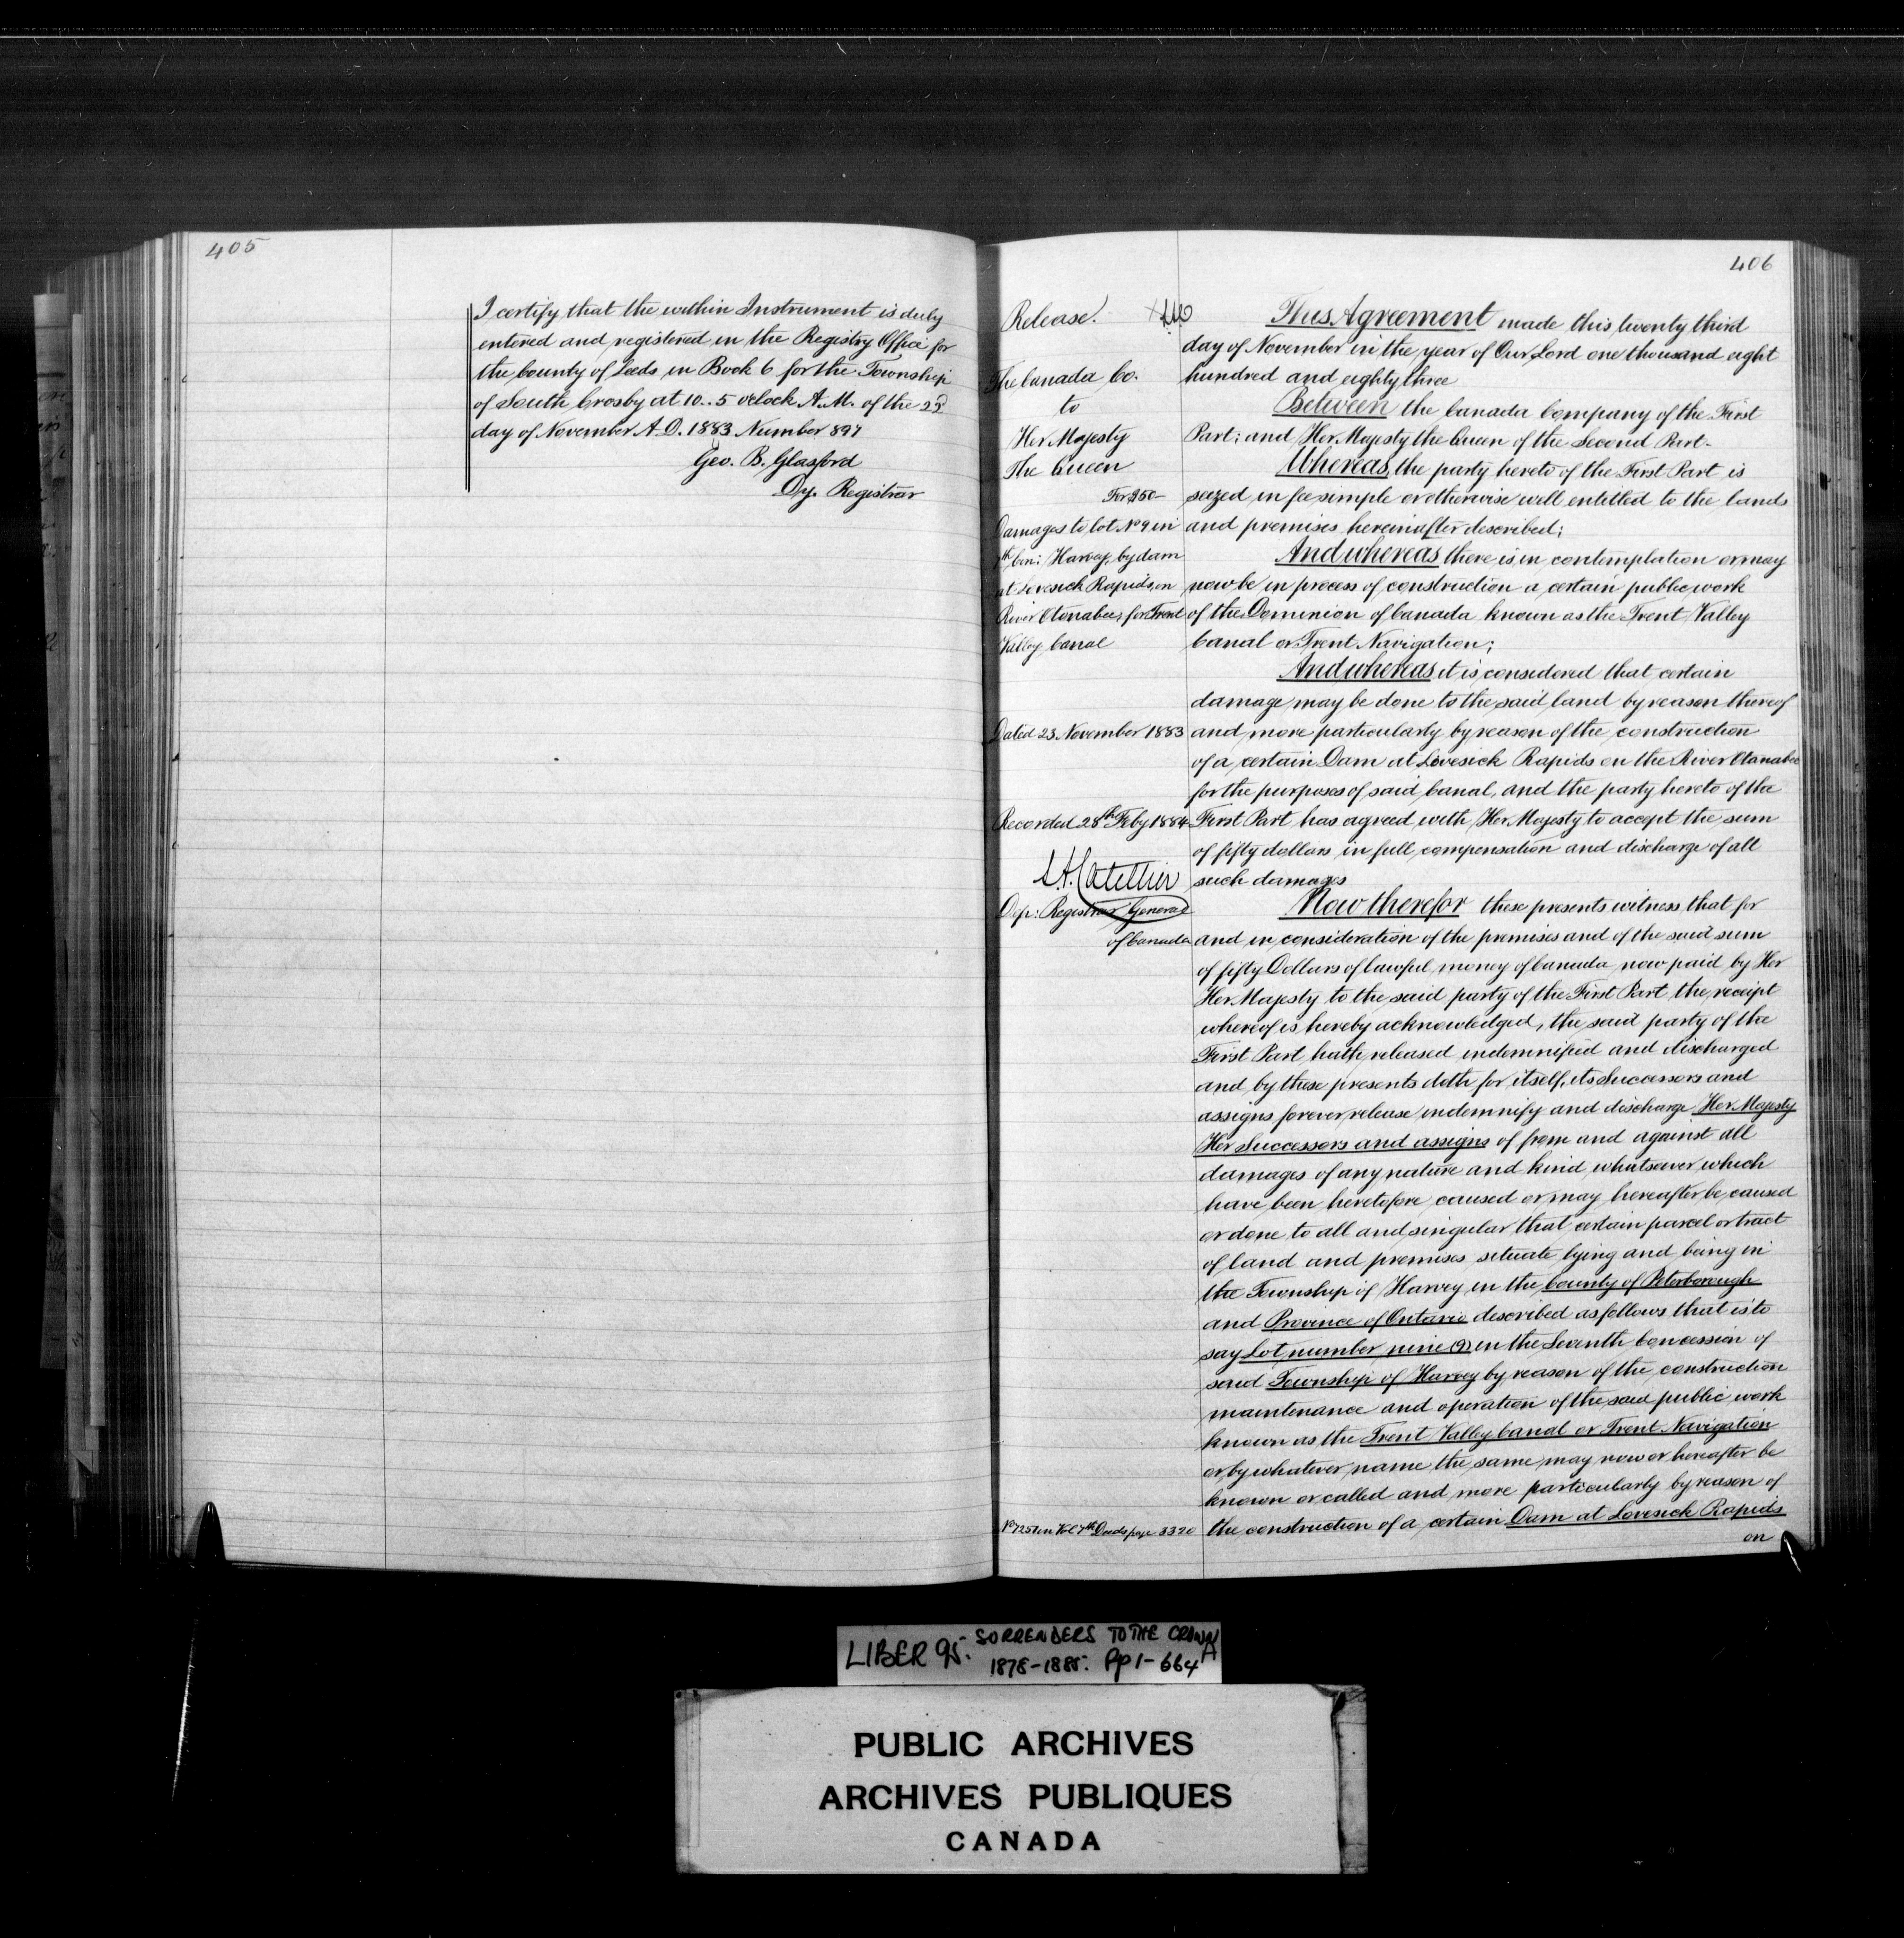 405
I certify that the within Instrument is duly
entered and registered in the Registry Office for
the County of Leeds in Book 6 for the Township
of South Crosby at 10..5 oclock A.M. of the 22d
day of November A.D. 1883 Number 897
Geo. B. Glasford
Dy. Registrar
406
Release.
The Canada Co.
to
Her Majesty
The Queen
For $50-
Damages to lot No 9 in
7th Con: Harvey, by dam
at Lovesick Rapids, on
River Otonabee, for Trent
Valley Canal
Dated 23 November 1883
Recorded 28th Feby 1884
L.A. Catellier
Dep: Registrar General
of Canada
No 7251 in Vol 7th Deeds page 3320
This Agreement made this twenty third
day of November in the year of Our Lord one thousand eight
hundred and eighty three
Between the Canada Company of the First
Part; and Her Majesty the Queen of the Second Part-
Whereas, the party hereto of the First Part is
seized in fee simple or otherwise well entitled to the lands
and premises hereinafter described;
And whereas there is in contemplation or may
now be in process of construction a certain public work
of the Dominion of Canada known as the Trent Valley
Canal or Trent Navigation;
And whereas it is considered that certain
damage may be done to the said land by reason thereof
and more particularly by reason of the construction
of a certain Dam at Lovesick Rapids on the River Otanabee
for the purposes of said Canal, and the party hereto of the
First Part has agreed with Her Majesty to accept the sum
of fifty dollars in full compensation and discharge of all
such damages
Now therefor these presents witness that for
and in consideration of the premises and of the said sum
of fifty Dollars of lawful money of Canada now paid by Her
Her Majesty to the said party of the First Part the receipt
whereof is hereby acknowledged, the said party of the
First Part hath released indemnified and discharged
and by these presents doth for itself, its Successors and
assigns forever release indemnify and discharge Her Majesty
Her Successors and assigns of from and against all
damages of any nature and kind whatsoever which
have been heretofore caused or may hereafter be caused
or done to all and singular that certain parcel or tract
of land and premises situate lying and being in
the Township of Harvey in the County of Peterborough
and Province of Ontario described as follows that is to
say Lot number nine (9) in the Seventh Concession of
said Township of Harvey by reason of the construction
maintenance and operation of the said public work
known as the Trent Valley Canal or Trent Navigation
or by whatever name the same may now or hereafter be
known or called and more particularly by reason of
the construction of a certain Dam at Lovesick Rapids
on
LIBER 95. SORRENDERS TO THE CROWN
1878-1885. Pp 1-664A
PUBLIC ARCHIVES
ARCHIVES PUBLIQUES
CANADA